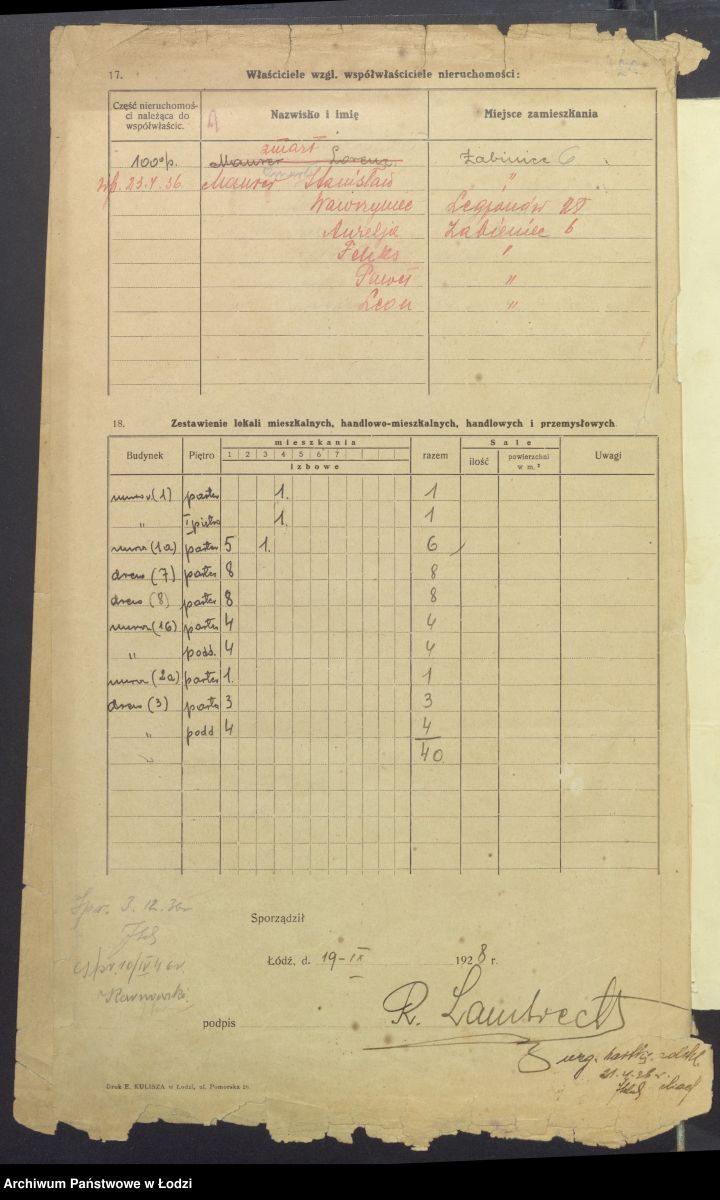 17. Właściciele wzgl. współwłaściciele nieruchomości:
Część nieruchomoś-
ci należąca do
współwłaścic.
Nazwisko i imię
Miejsce zamieszkania
zmarł
100% Maurer Lorenz Żabiniec 6
23.4.36 Maurer Stanisław "
Wawrzyniec Legjonów
Aurelja Żabieniec 6
Feliks "
Paweł "
Leon "
18. Zestawienie lokali mieszkalnych, handlowo-mieszkalnych, handlowych i przemysłowych.
Budynek Piętro mieszkania razem Sale Uwagi
1 2 3 4 5 6 7
izbowe
ilość powierzchni w m.²
murow (1) parter 1. 1
" I piętro 1. 1
murow (1a) parter 5 1. 6
drew (7) parter 8 8
drew (8) parter 8 8
murow (16) parter 4 4
" podd. 4 4
murow (2a) parter 1. 1
drew (3) parter 3 3
" podd 4 4
40
3. 12. 36
Sporządził
Łódź, d. 19-IX 1928 r.
podpis R. Lambrecht
Druk E. KULISZA w Łodzi, ul. Pomorska
Archiwum Państwowe w Łodzi